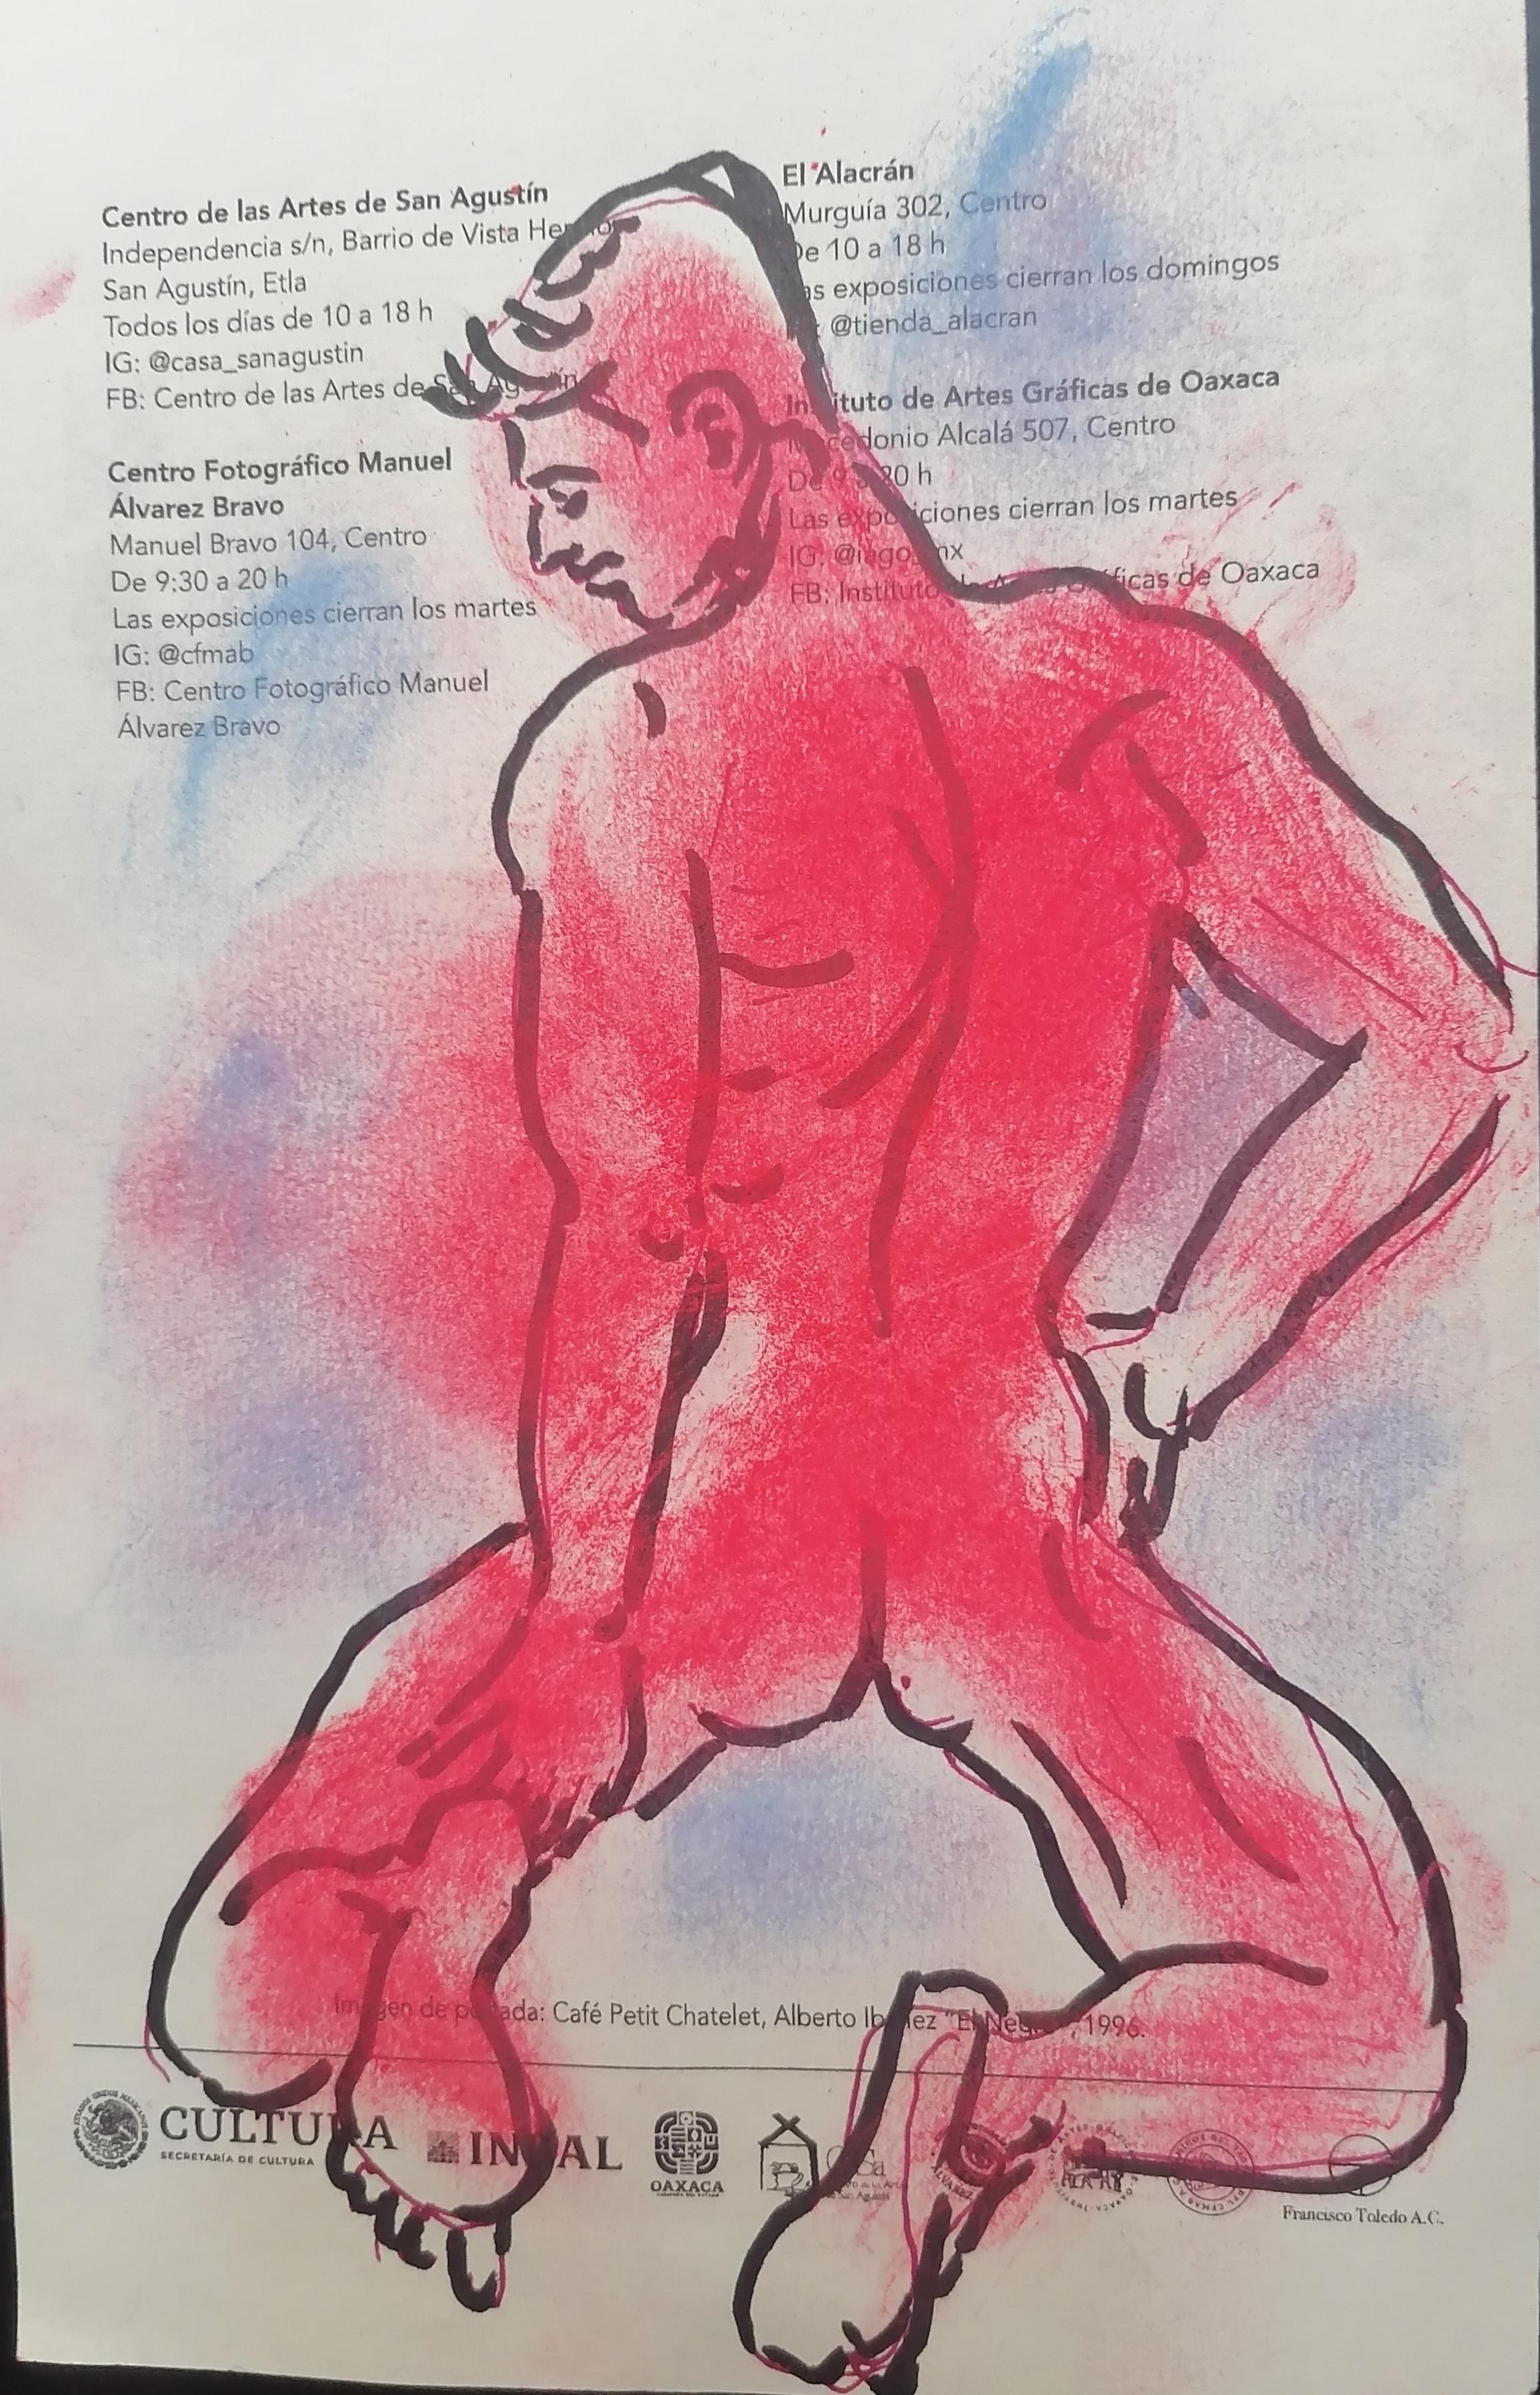 Centro de las Artes de San Agustín
Independencia s/n, Barrio de Vista
San Agustín, Etla
Todos los días de 10 a 18 h
IG: @casa_sanagustin
FB: Centro de las Artes de San Agustín
Centro Fotográfico Manuel
Álvarez Bravo
Manuel Bravo 104, Centro
De 9:30 a 20 h
Las exposiciones cierran los martes
IG: @cfmab
FB: Centro Fotográfico Manuel
Álvarez Bravo
El Alacrán
Murguía 302, Centro
De 10 a 18 h
Las exposiciones cierran los domingos
@tienda_alacran
Instituto de Artes Gráficas de Oaxaca
Macedonio Alcalá 507, Centro
De 9 a 20 h
Las exposiciones cierran los martes
IG: @iago_mx
FB: Instituto de Artes Gráficas de Oaxaca
Imagen de portada: Café Petit Chatelet, Alberto Ibáñez "El Negro", 1996.
CULTURA
SECRETARÍA DE CULTURA
INBAL
OAXACA
CaSa
San Agustín
Francisco Toledo A.C.